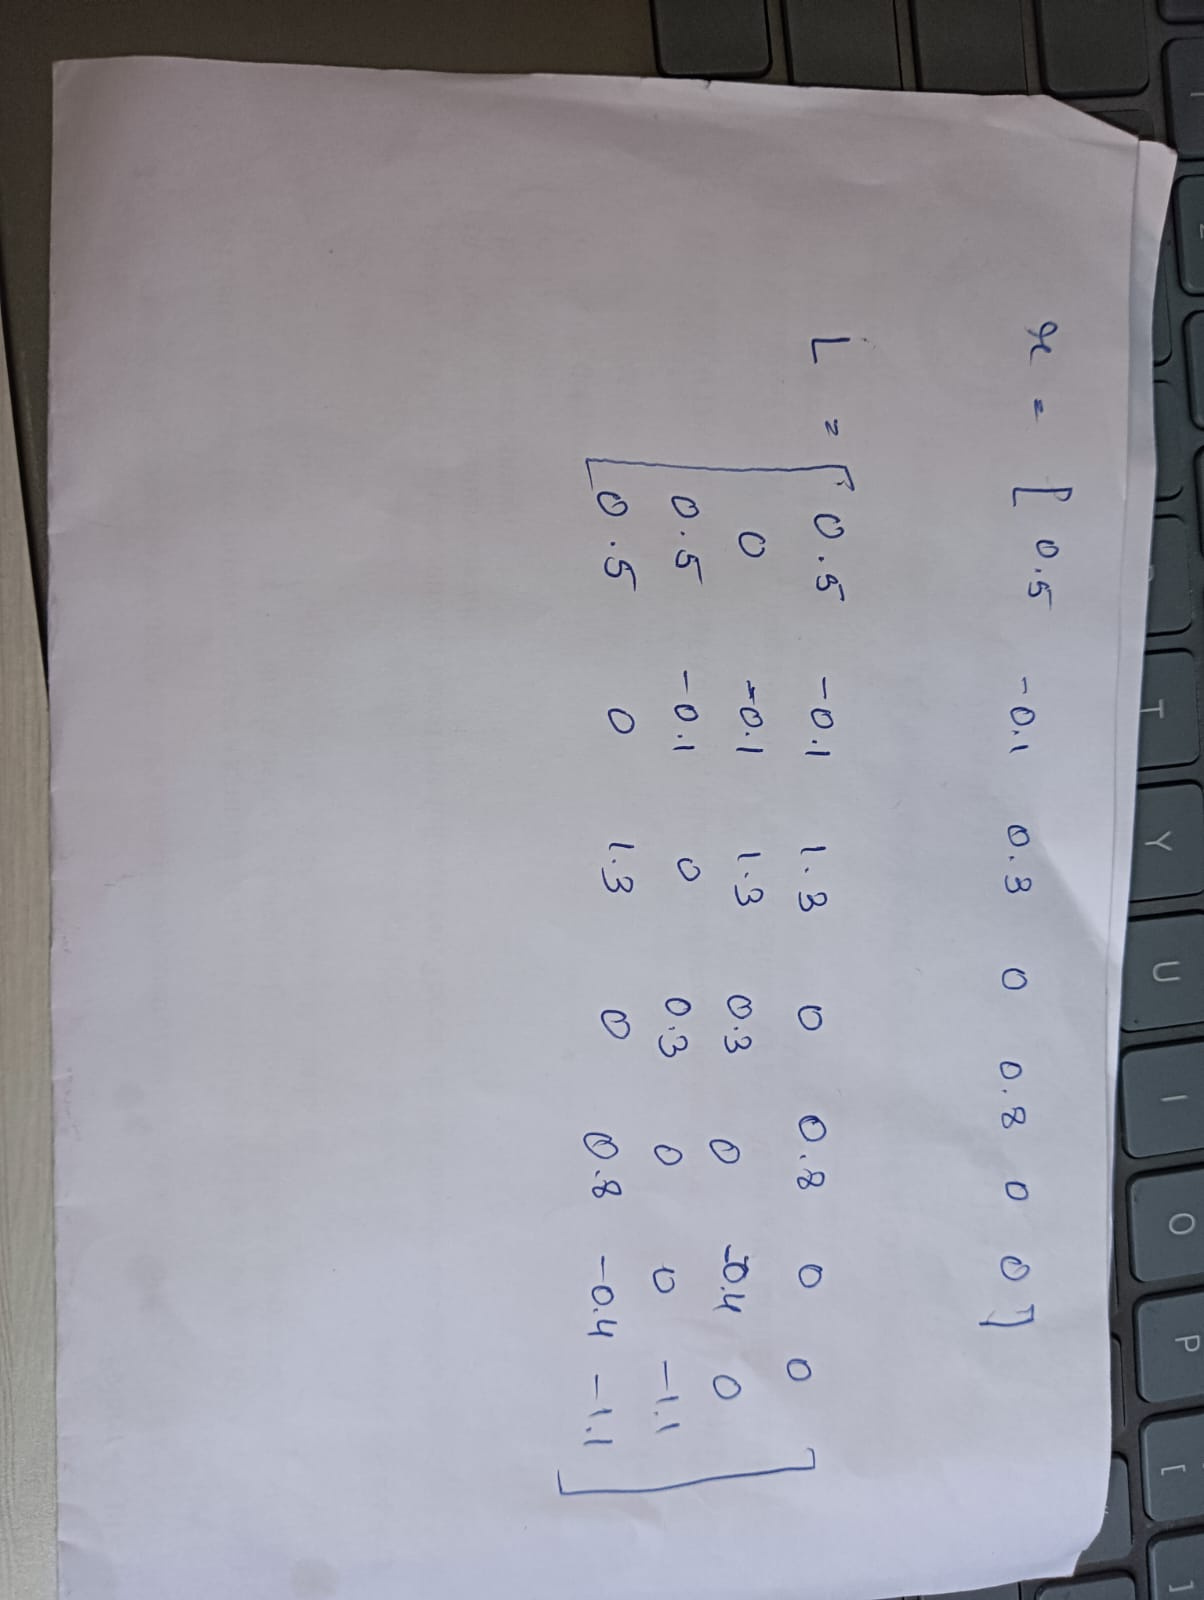 x = [ 0.5 -0.1 0.3 0 0.8 0 0 ]
L = [ 0.5 -0.1 1.3 0 0.8 0 0
0 -0.1 1.3 0.3 0 -0.4 0
0.5 -0.1 0 0.3 0 0 -1.1
0.5 0 1.3 0 0.8 -0.4 -1.1 ]
T Y U I O P [ ]